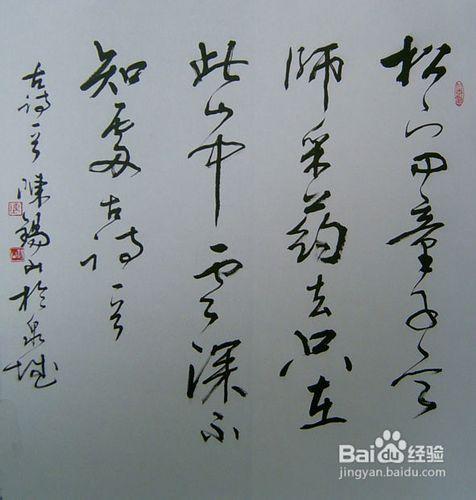 松下问童子言
师采药去只在
此山中雲深不
知處古诗一首
古诗一首 陳錫山於泉城
Baidu经验
jingyan.baidu.com